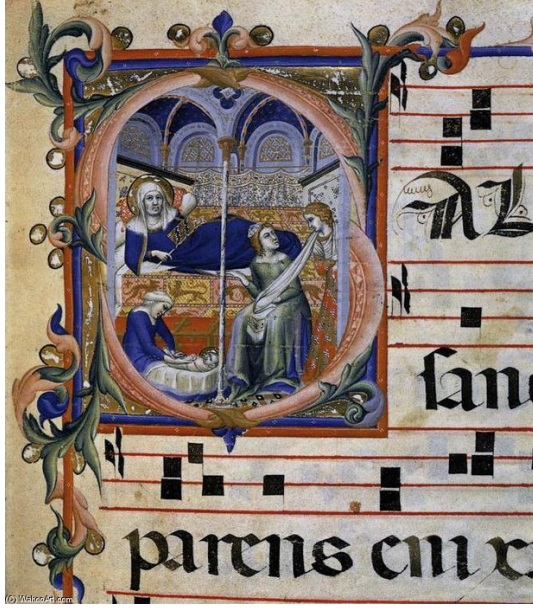 SAL
sanc
parens enix
(c) WahooArt.com